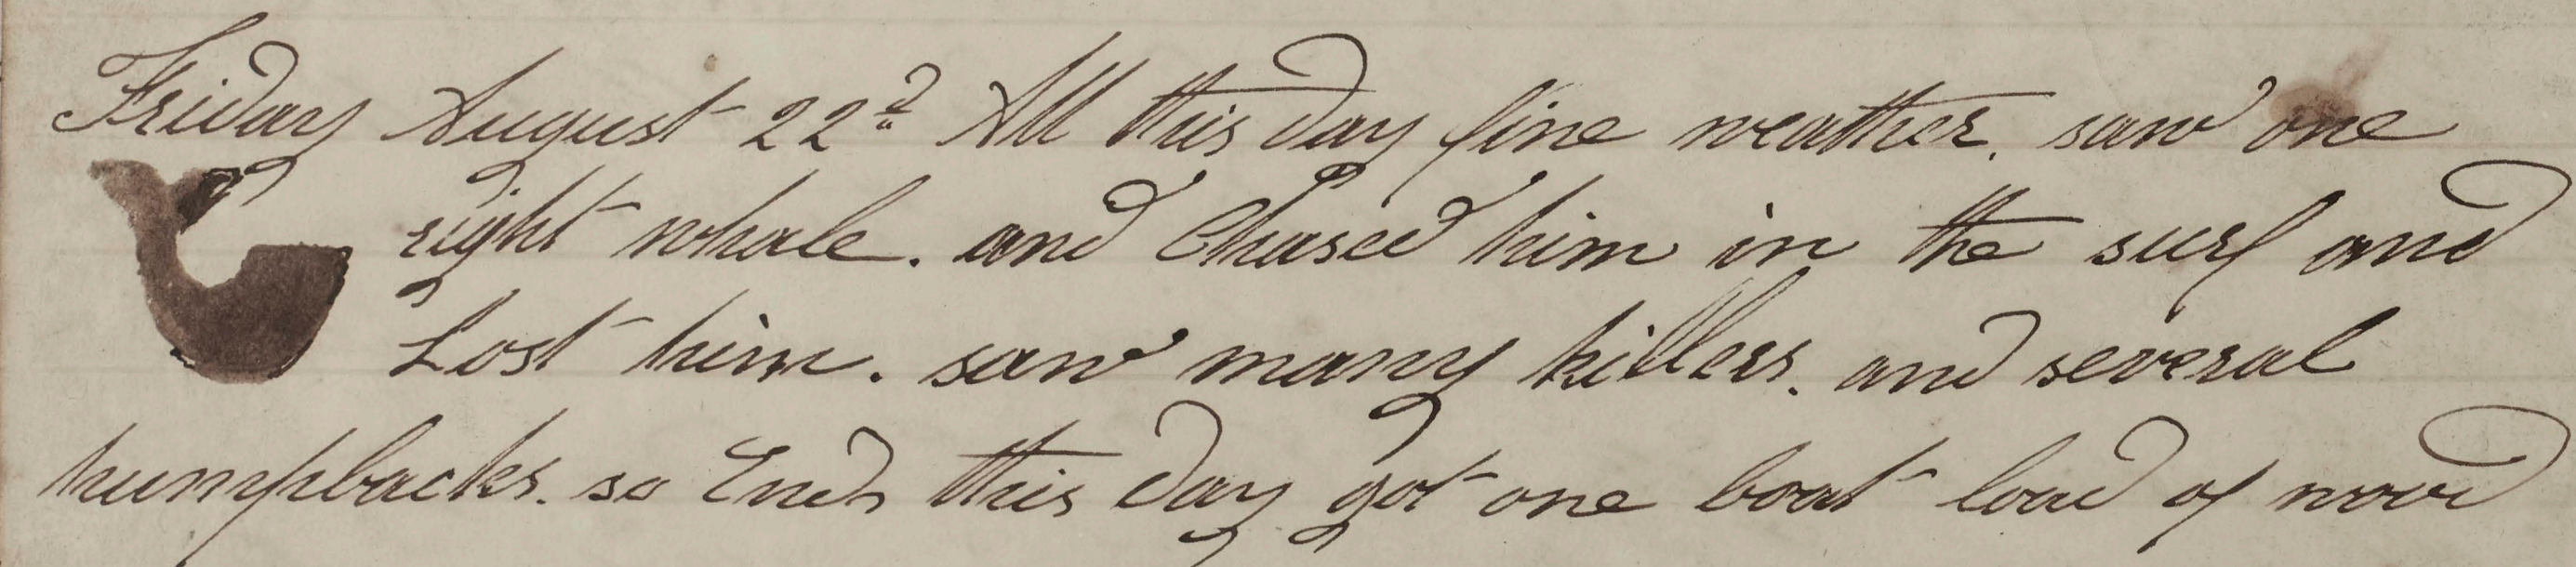 Friday August 22d All this day fine weather. saw one
right whale. and Chased him in the surf and
Lost him. saw many killers. and several
humpbacks. so Ends this day got one boat load of wood